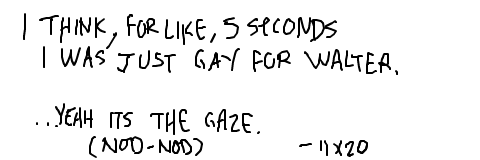 I THINK, FOR LIKE, 5 SECONDS
I WAS JUST GAY FOR WALTER.
..YEAH ITS THE GAZE.
(NOD-NOD) - 11x20